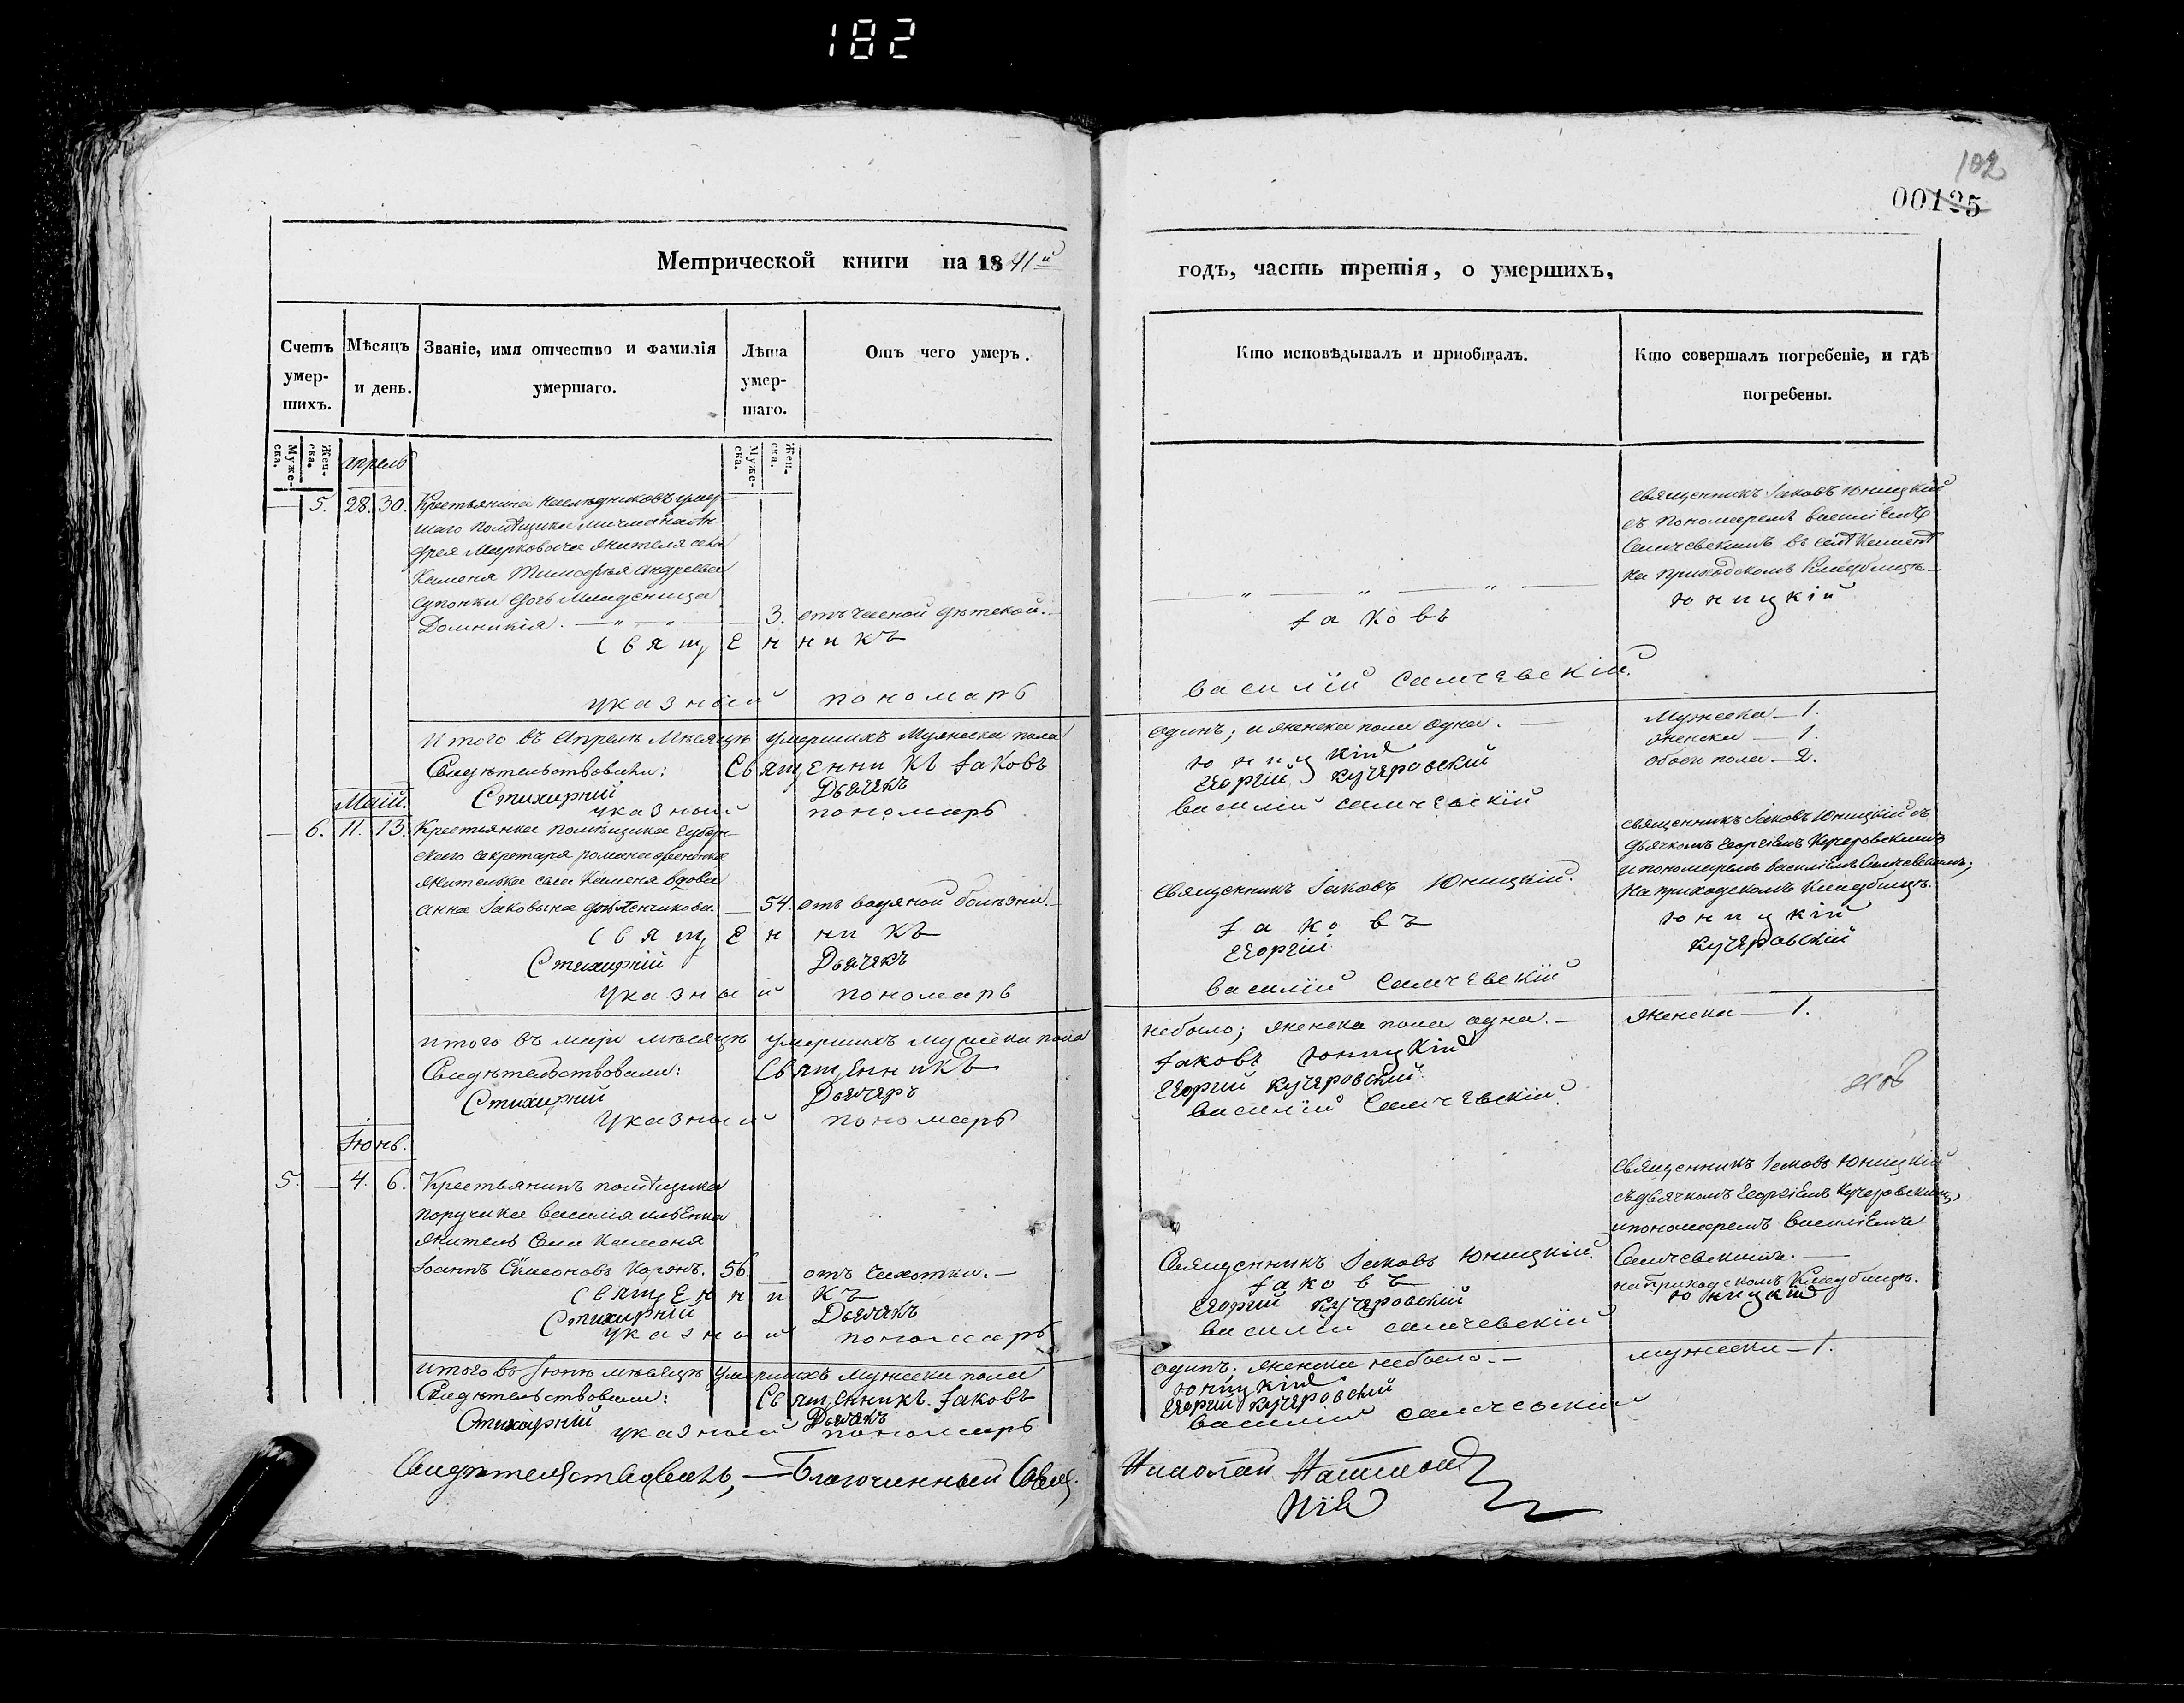 182
102
00125
Метрической книги на 1841й годъ, часть третія, о умершихъ,
Счетъ умер-шихъ.
Мѣсяцъ и день.
Званіе, имя отчество и фамилія умершаго.
Лѣта умер-шаго.
Отъ чего умеръ.
Кто исповѣдывалъ и пріобщалъ.
Кто совершалъ погребеніе, и гдѣ погребены.
Муже-ска.
Жен-ска.
Муже-ска.
Жен-ска.
апрель
5. 28. 30.
Крестьянина наследниковъ умер
шаго помѣщика мичмана Ан
дрея Марковича жителя села
Каменя Тимофея Андреева
Супонки дочь младеница
Домникія.
3. отъ чесной дѣтской.
Священникъ Іаковъ Юницкій
съ пономаремъ Василіемъ
Самчевскимъ въ селѣ Камени
на приходскомъ кладбищѣ
Священникъ Іаковъ Юницкій
указный пономарь Василій Самчевскій.
Итого въ Апрелѣ Мѣсяцѣ умершихъ Мужеска пола одинъ; и женска пола одна.
Мужеска — 1.
женска — 1.
обоего пола — 2.
Свидѣтельствовали: Священникъ Іаковъ Юницкій
Стихирній Дьячекъ Георгій Кучеровскій
указный пономарь Василій Самчевскій
Маій.
6. 11. 13.
Крестьянка помѣщика Губерн
скаго секретаря романа
жителька села Каменя вдова
Анна Іаковьна
54. отъ водяной болѣзни.
Священникъ Іаковъ Юницкій.
Священникъ Іаковъ Юницкій съ
дьячкомъ Георгіемъ Кучеровскимъ
и пономаремъ Василіемъ Самчевскимъ;
на приходскомъ кладбищѣ.
Священникъ Іаковъ Юницкій
Стихирній Дьячекъ Георгій Кучеровскій
указный пономарь Василій Самчевскій
Итого въ маіи мѣсяцѣ умершихъ мужеска пола небыло; женска пола одна.
женска — 1.
Свидѣтельствовали: Священникъ Іаковъ Юницкій
Стихирній Дьячекъ Георгій Кучеровскій
Указный пономарь Василій Самчевскій.
Іюнь.
5. 4. 6.
Крестьянинъ помѣщика
поручика Василія
житель Села Каменя
Іоаннъ Сѵмеоновъ Коржъ.
56.
отъ Чахотки.
Священникъ Іаковъ Юницкій.
Священникъ Іаковъ Юницкій
съ дьячкомъ Георгіемъ Кучеровскимъ,
и пономаремъ Василіемъ
Самчевскимъ.
на приходскомъ Кладбищѣ.
Священникъ Іаковъ Юницкій
Стихирній Дьячекъ Георгій Кучеровскій
указный пономарь Василій Самчевскій
Итого въ Іюнѣ мѣсяцѣ умершихъ мужеска пола одинъ. женска небыло.
мужеска — 1.
Свидѣтельствовали: Священникъ Іаковъ Юницкій.
Стихирній Дьячекъ Георгій Кучеровскій
указный пономарь Василій Самчевскій
Свидѣтельствовалъ, — Благочинный Свящ. Николай